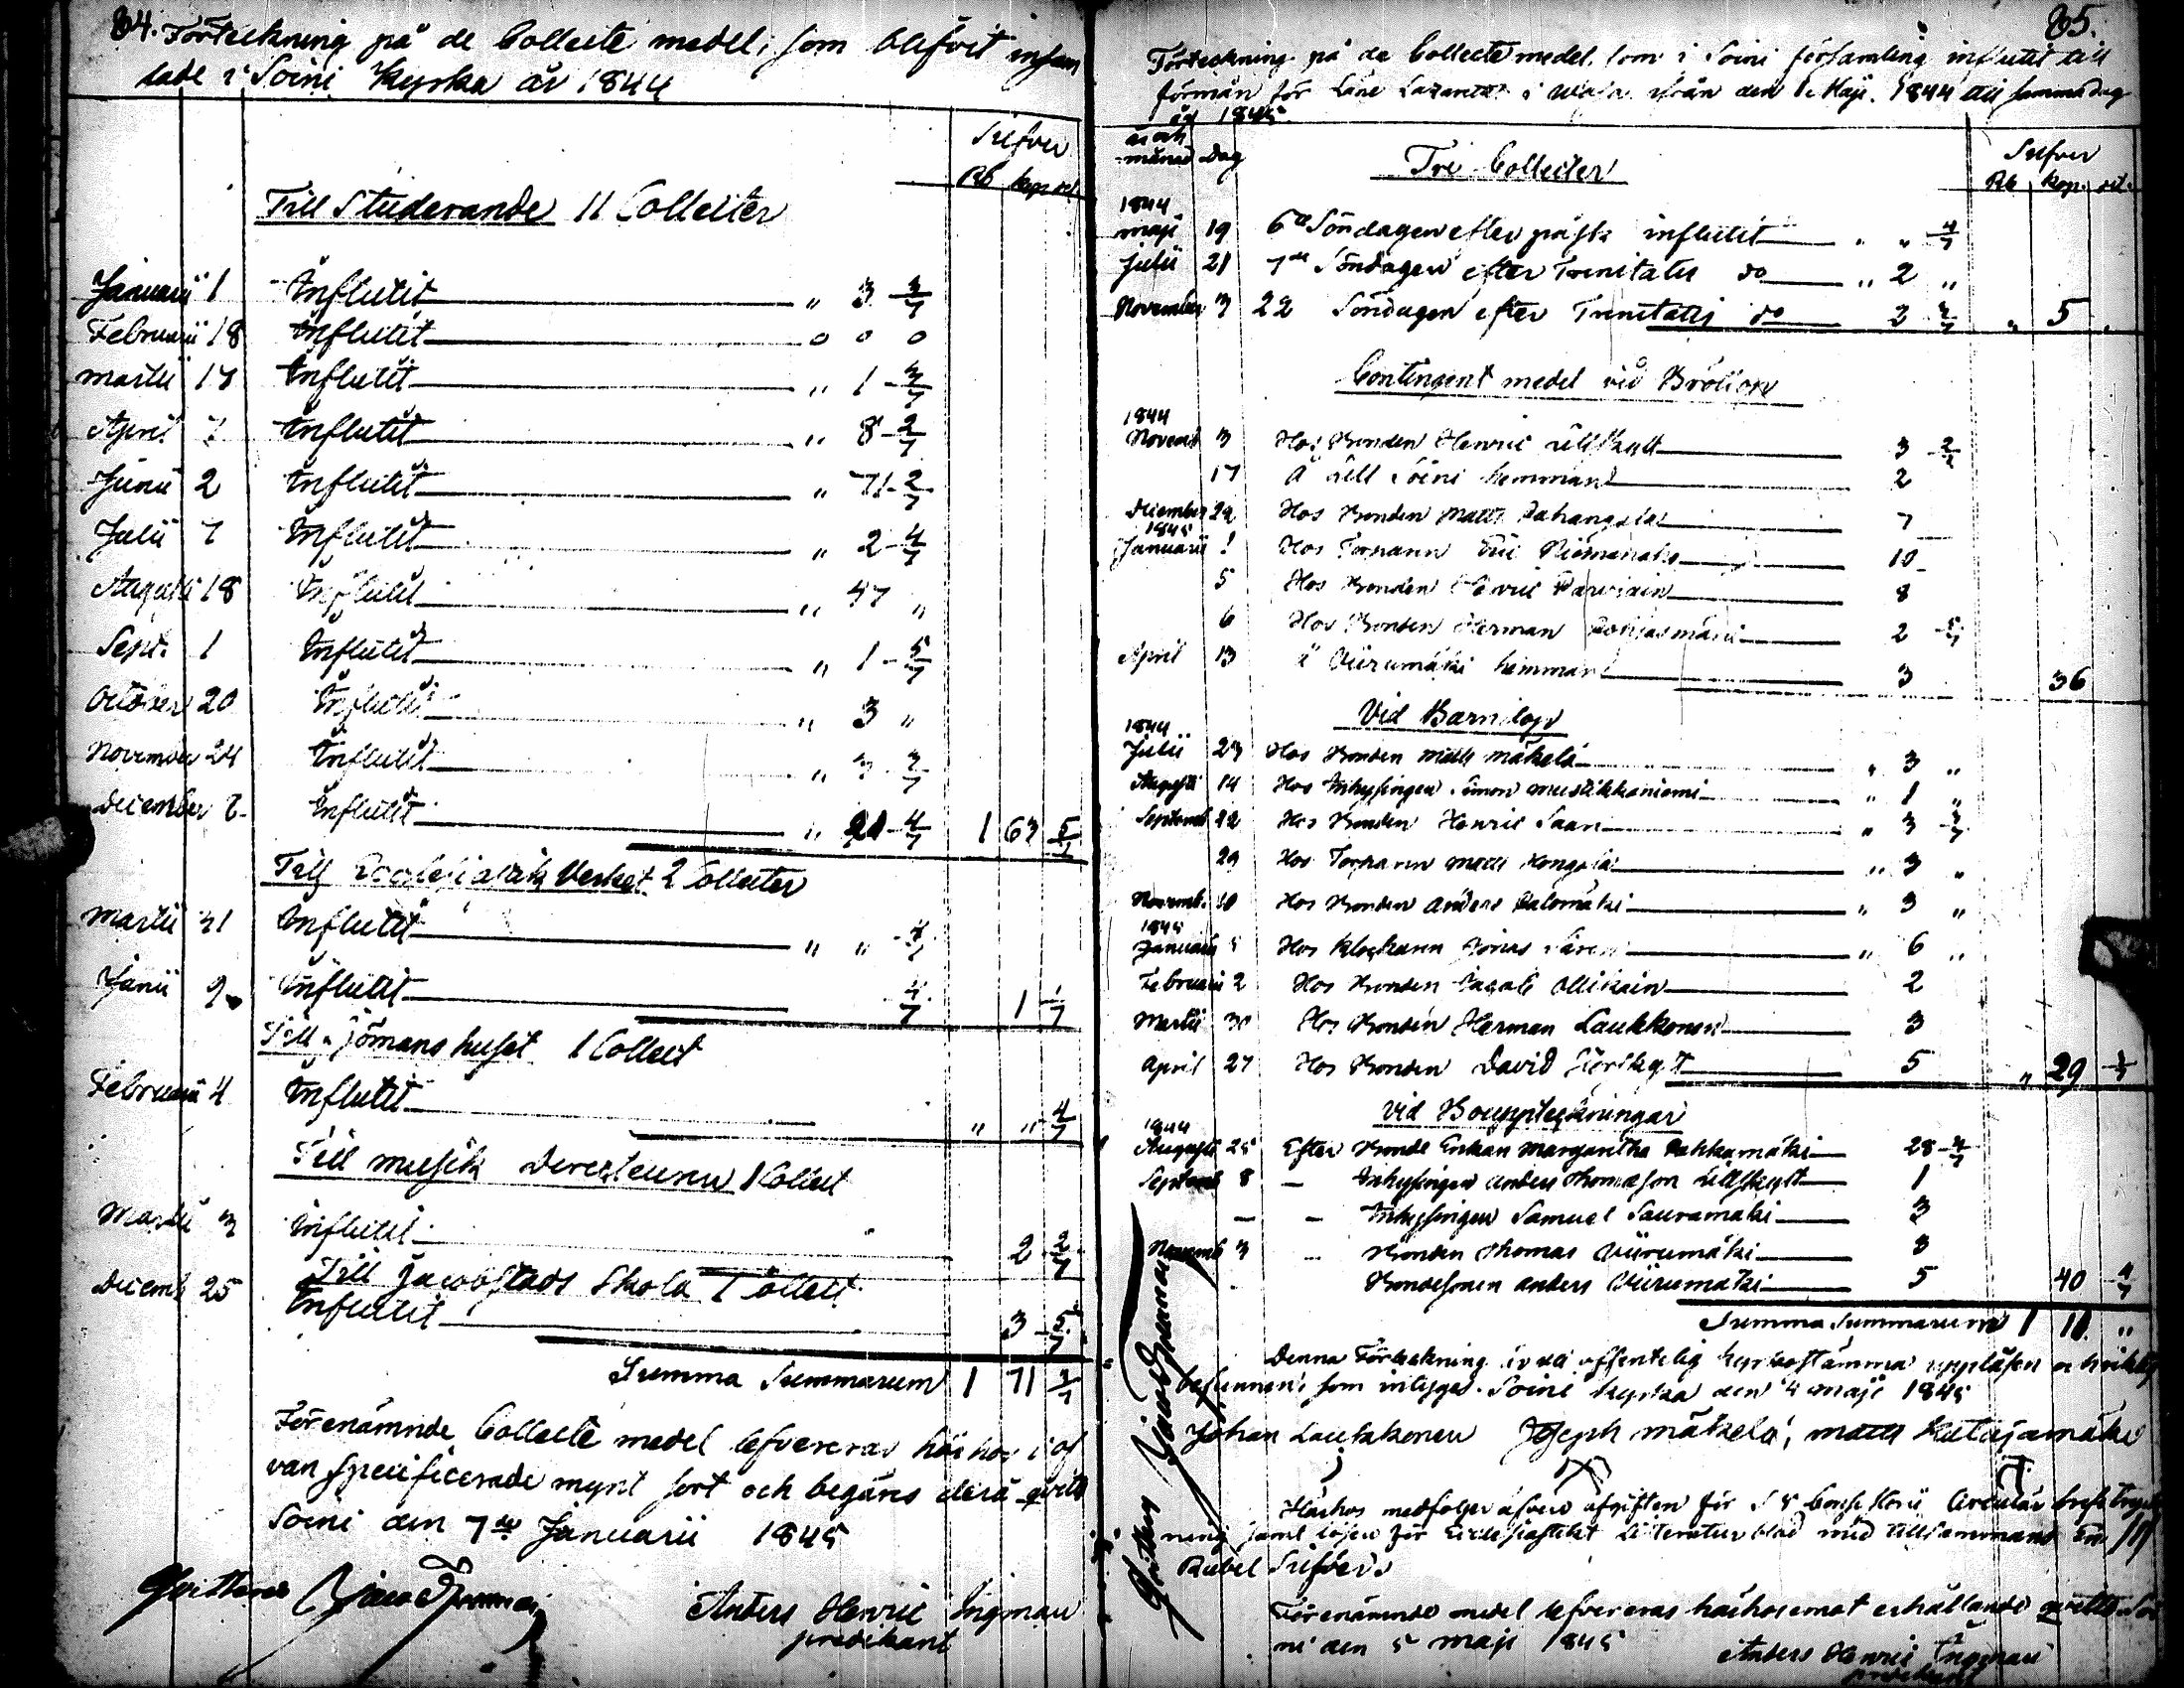 84.
Förteckning på de Collecte medel, som blifvit insam
lade i Soini Kyrka år 1844
Silfver
Rb kop sil
Till Studerande 11 Collecter
Januarii 1 Influtit " 3 3/7
Februarii 18 Influtit 0 0 0
Martii 17 Influtit " 1 3/7
April 7 Influtit " 8 2/7
Junii 2 Influtit " 71 2/7
Julii 7 Influtit " 2 4/7
Augusti 18 Influtit " 47 "
Sept. 1 Influtit " 1 5/7
October 20 Influtit " 3 "
November 24 Influtit " 3 3/7
December 8 Influtit " 21 4/7 1 63 5/7
Till Ecclesiastik Verket 2 Collecter
Martii 31 Influtit " " 4/7
Junii 9 Influtit 4/7 1 1/7
Till Sjömanshuset 1 Collect
Februarii 4 Influtit " " 4/7
Till musik Directeuren 1 Collect
Martii 3 Influtit 2 2/7
Till Jacobstads Skola 1 Collect
Decemb 25 Influtit 3 5/7
Summa Summarum 1 71 3/7
Förenämnde Collecte medel lefvereras härhos i of
van specificerade mynt sort och begäres derå qvitto
Soini den 7de Januarii 1845
Qvitteras
Anders Henric Ingman
predikant
85.
Förteckning på de Collecte medel, som i Soini församling influtit till
förmån för Läne Lazarettet i Wasa ifrån den 1 Maji 1844 till samma dag
år 1845
år och
månad dag Tre Collecter Silfver
Rb kop. sil.
1844
maji 19 6te Söndagen efter påsk influtit " " 4/7
Julii 21 7de Söndagen efter Trinitatis do " 2 "
November 3 22 Söndagen efter Trinitatis do 2 3/7 " 5 "
Contingent medel vid Bröllop
1844
Novemb 3 Hos Bonden Henric Lillskytt 3 2/7
17 å Lill Soini hemman 2
December 29 Hos Bonden Matts 7
1845
Januarii 1 Hos Torparen Eric 10
5 Hos Bonden Henric Parviain 8
6 Hos Bonden Herman Pohjasmäki 2 5/7
April 13 å Viirumäki hemman 3 36
Vid Barndop
1844
Julii 23 Hos Bonden Matts Mäkelä " 3 "
Augusti 14 Hos Inhysingen Simon Mustikkaniemi " 1 "
Septemb 22 Hos Bonden Henric Saari " 3 3/7
29 Hos Torparen Matts " 3 "
Novemb. 10 Hos Bonden Anders Palomäki " 3 "
1845
Januarii 5 Hos Klockaren Jonas " 6 "
Februarii 2 Hos Bonden Jacob Ollikain 2
Martii 30 Hos Bonden Herman Laukkonen 3
April 27 Hos Bonden David 5 " 29 3/7
Vid Bouppteckningar
1844
Augusti 25 Efter Bonde Enkan Margaretha Pakkamäki 28 4/7
Septemb 8 — Inhysingen Anders Thomasson Lillskytt 1
— — Inhysingen Samuel Sauramäki 3
Novemb 3 — Bonden Thomas Viirumäki 3
Bondesonen Anders Viirumäki 5 40 4/7
Summa Summarum 1 11 "
Denna Förteckning är vid offentelig Kyrkostämma uppläsen och riktig
befunnen, som intygas. Soini kyrka den 4 maji 1845
Johan Laukkonen Joseph Mäkelä, Matts Katajamäki
Härhos medföljer äfven afgiften för
ning samt lösen för Ecclesiastikt Litteratur blad med tillsammans En
Rubel Silfver.
Förenämnde medel lefvereras härhos emot erhållande qvitto. Soi
ni den 5 maji 1845
Anders Henric Ingman
predikant